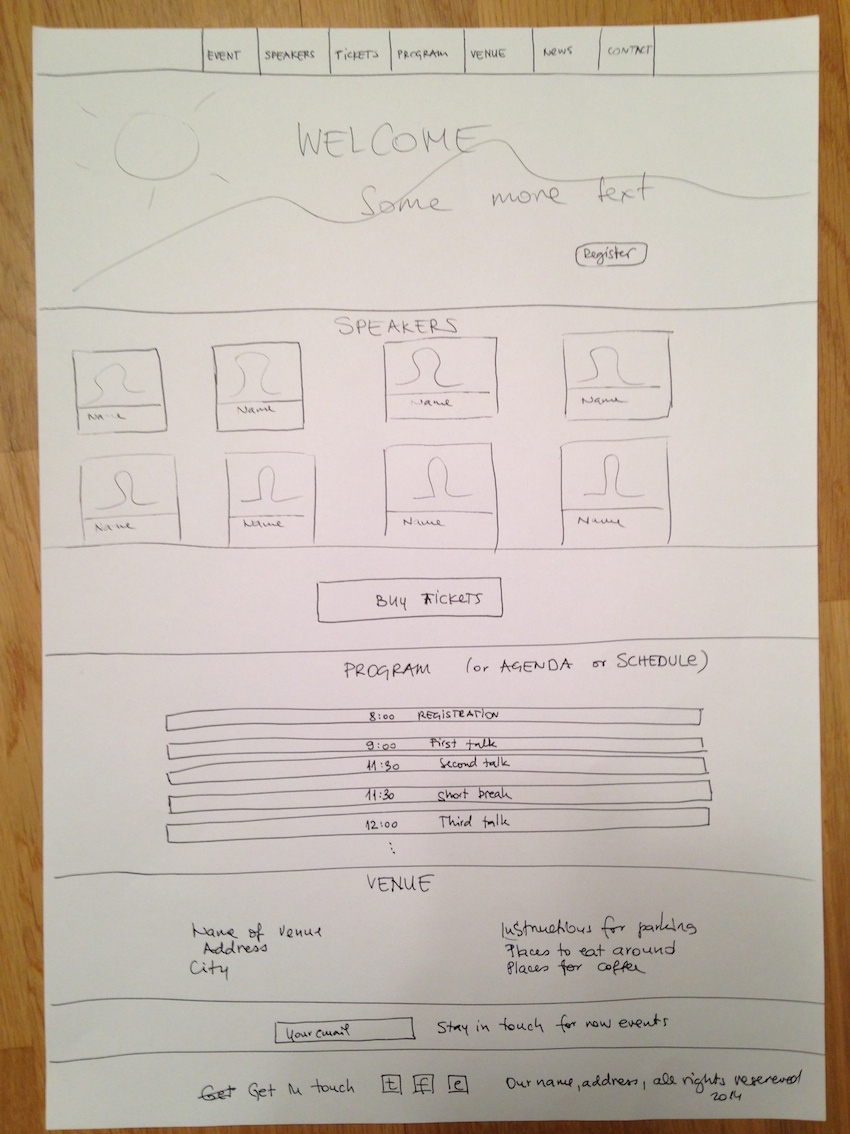 EVENT SPEAKERS TICKETS PROGRAM VENUE NEWS CONTACT
WELCOME
Some more text
Register
SPEAKERS
Name Name Name Name
Name Name Name Name
BUY TICKETS
PROGRAM (or AGENDA or SCHEDULE)
8:00 REGISTRATION
9:00 First talk
11:30 Second talk
11:30 Short break
12:00 Third talk
VENUE
Name of venue
Address
City
Instructions for parking
Places to eat around
Places for coffee
Your email Stay in touch for new events
Get Get in touch t f e Our name, address, all rights resereved
2014